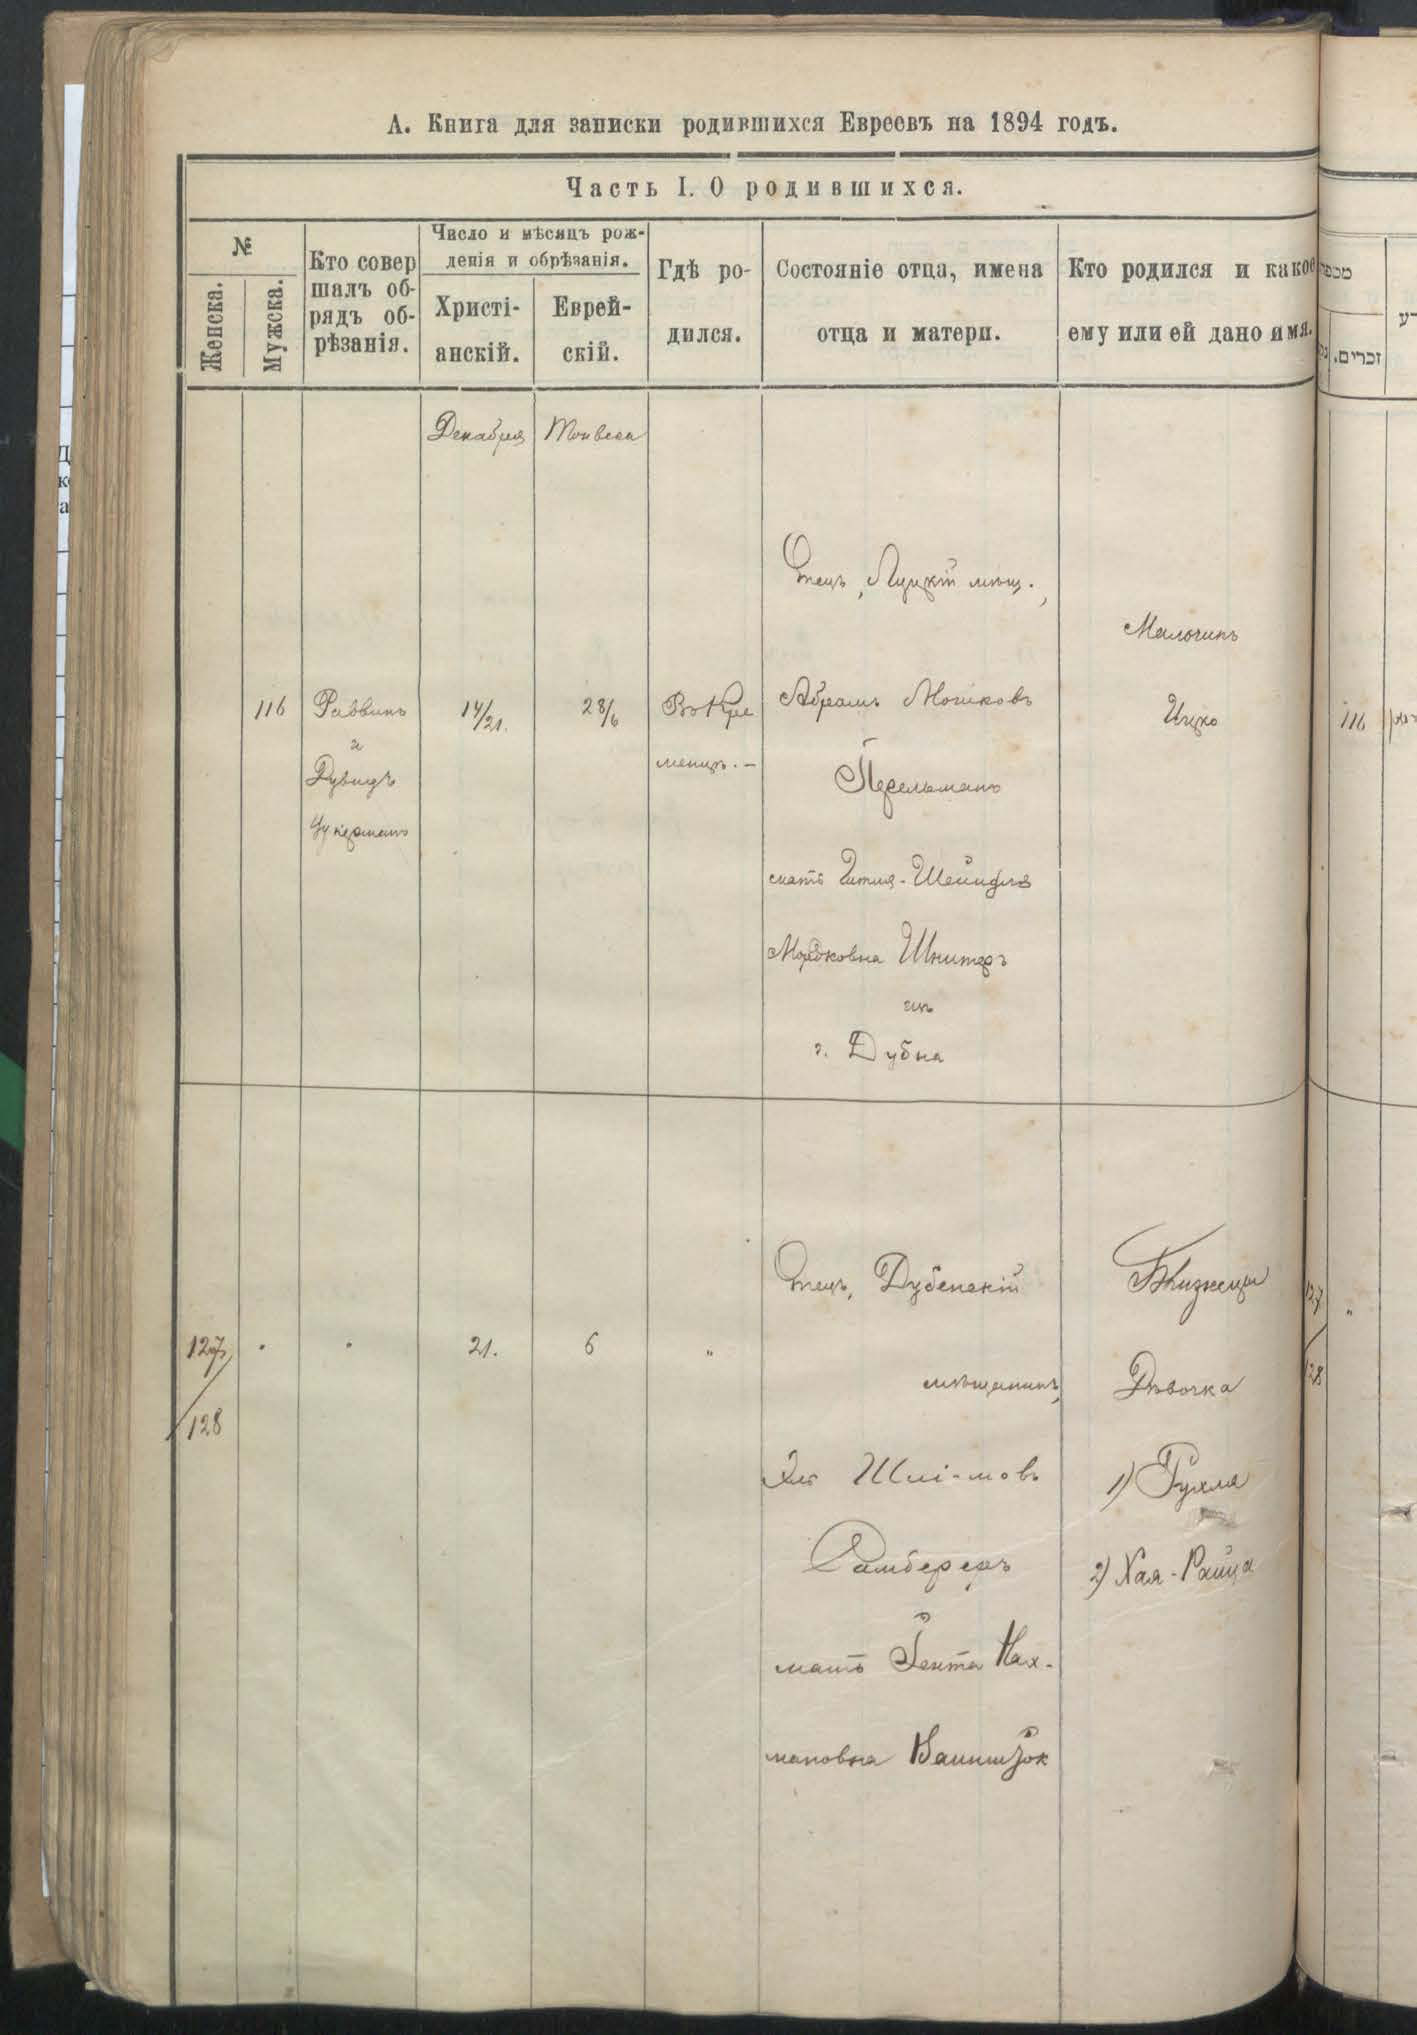 А. Книга для записки родившихся Евреевъ на 1894 годъ.
Часть I. О родившихся.
№
Женска.
Мужска.
Кто совер
шалъ об-
рядъ об-
рѣзанія.
Число и мѣсяцъ рож-
денія и обрѣзанія.
Христі-
анскій.
Еврей-
скій.
Гдѣ ро-
дился.
Состояніе отца, имена
отца и матери.
Кто родился и какое
ему или ей дано имя.
Декабря
116
Раввинъ
и
Дувидъ
Цукерманъ
14/21.
28/6
Въ Кре
менцѣ. —
Отецъ, Луцкій мѣщ.,
Абрамъ Мошковъ
Перельманъ
мать Гитля-Шейндля
Мордковна Шнитеръ
изъ
г. Дубна
Мальчикъ
Ицко
127/
128
21.
6
"
Отецъ, Дубенскій
мѣщанинъ,
мать Нах-
мановна
Близнецы
Дѣвочка
1) Рухля
2) Хая-Райца
זכרים.
116
127/
128
"